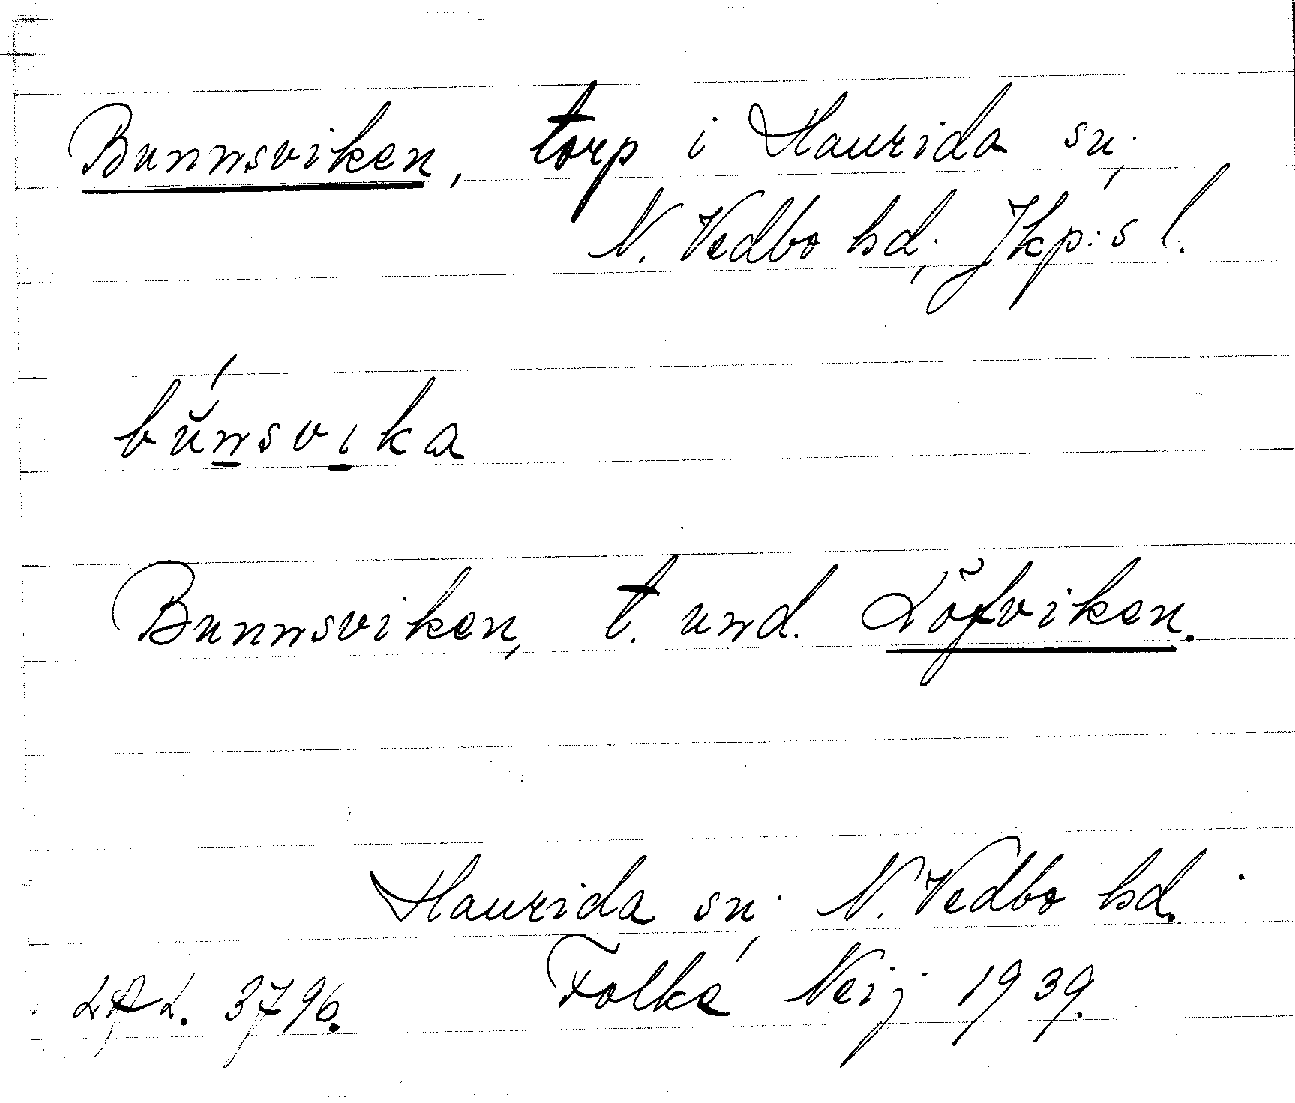 Bunnsviken, torp i Haurida sn,
N. Vedbo hd, Jkp:s l.
bŭnsvika
Bunnsviken, t. und. Löfviken.
Haurida sn, N. Vedbo hd.
LAL. 3796. Folke Neij 1939.